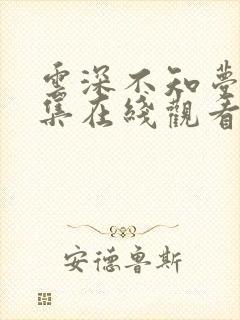 雲深不知夢
集在綫觀看
安德魯斯